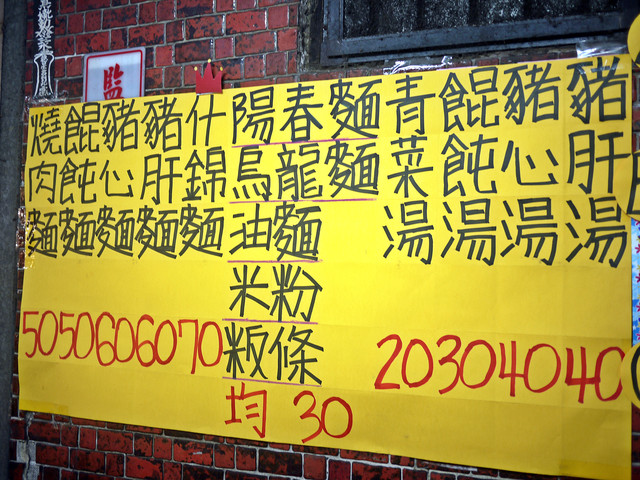 燒肉麵 50
餛飩麵 50
豬心麵 60
豬肝麵 60
什錦麵 70
陽春麵
烏龍麵
油麵
米粉
粄條
均 30
青菜湯 20
餛飩湯 30
豬心湯 40
豬肝湯 40
監